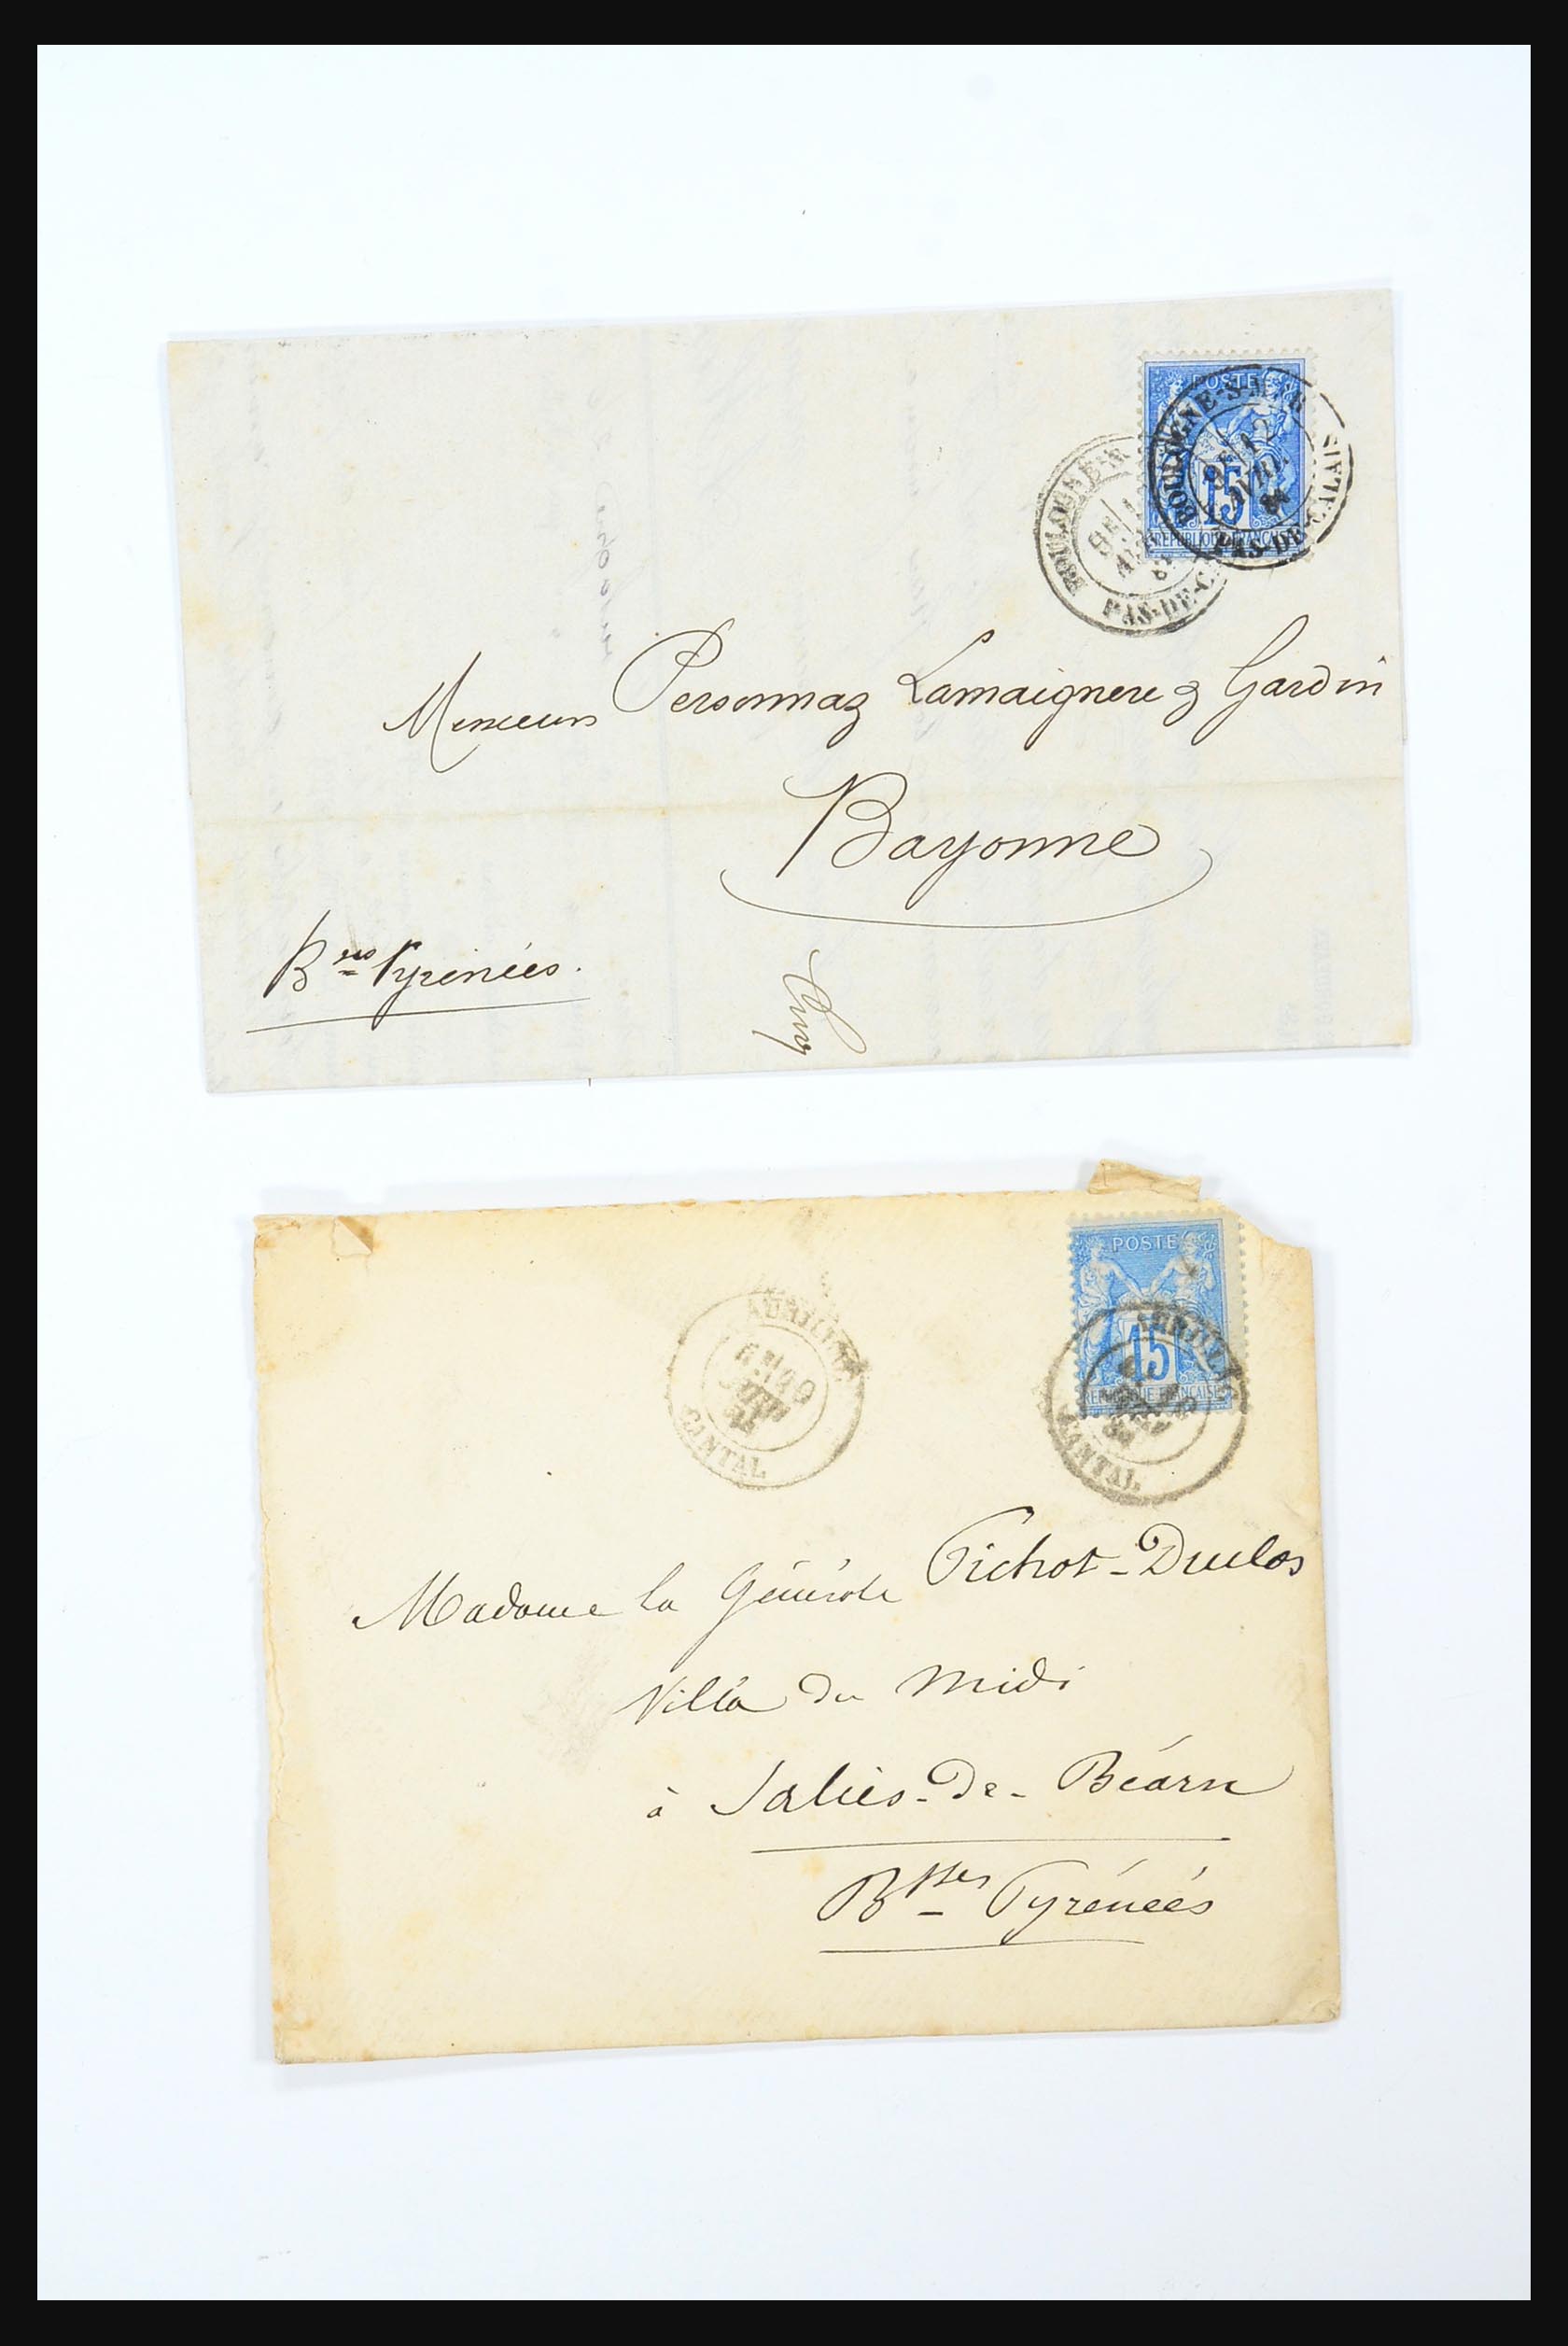 POSTE
15
REPUBLIQUE FRANCAISE
BOULOGNE-S-MER
PAS-DE-CALAIS
BOULOGNE
PAS-DE-CA
Messieurs Personnaz Lamaignere & Gardin
Bayonne
Bses Pyrénées.
POSTE
15
REPUBLIQUE FRANCAISE
AURILLAC
CANTAL
AURILLAC
CANTAL
Madame la Générale Pichot-Duclos
Villa du Midi
à Salies-de-Béarn
Bsses Pyrénées